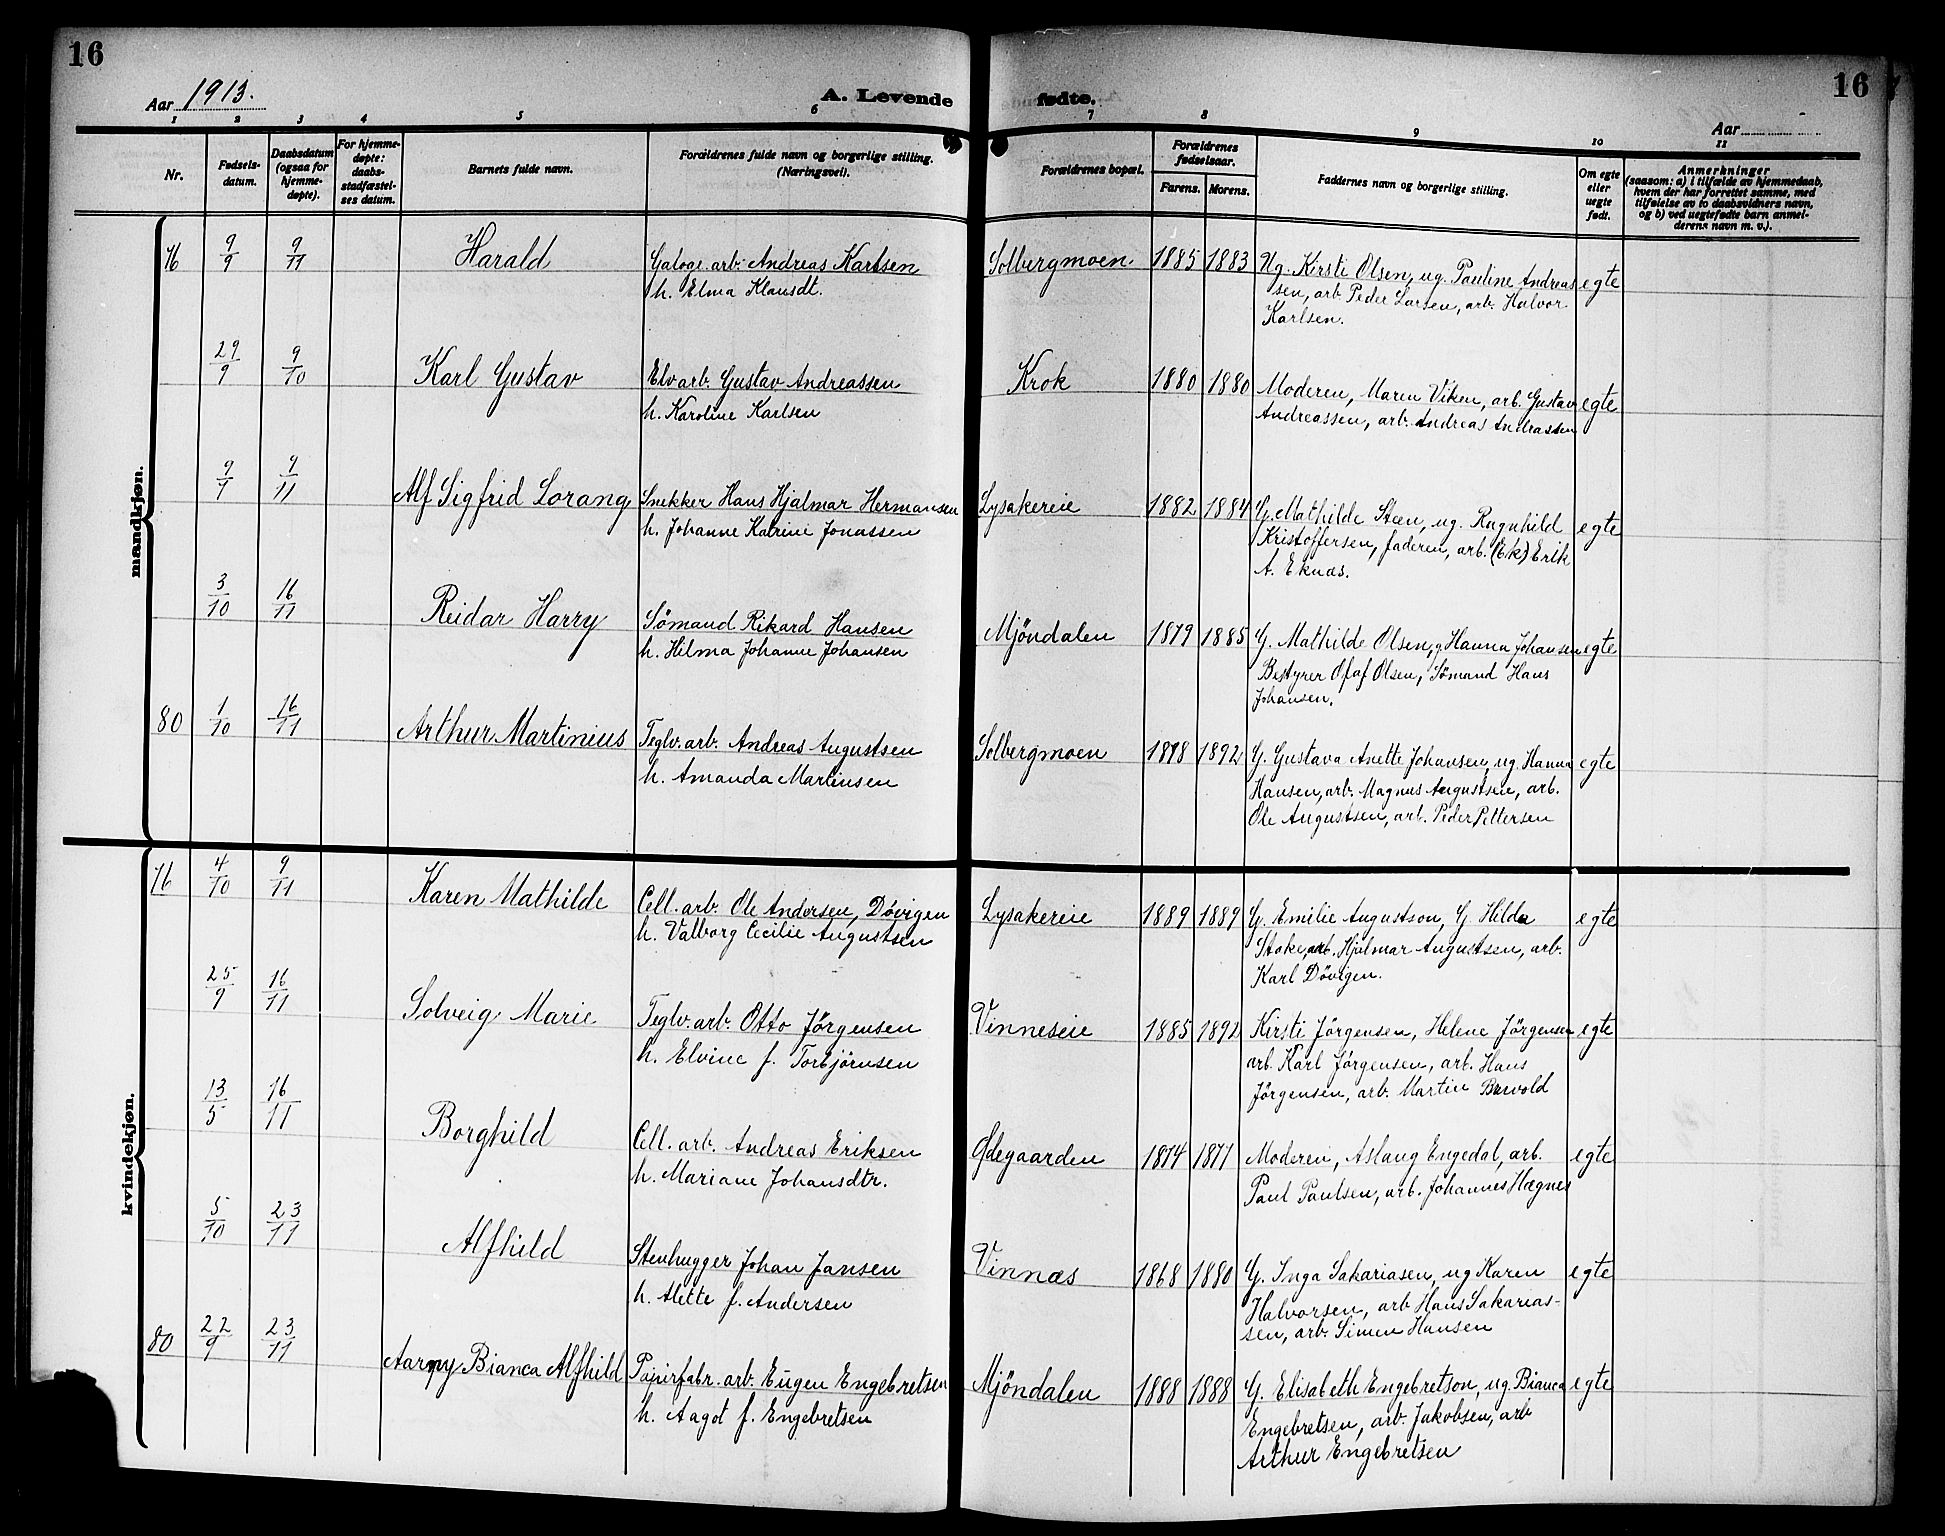 16
16
Aar 1913.
A. Levende
fødte.
Aar
1 2 3 4 5 6
7 8 9 10 11
Nr.
Fødsels-
datum.
Daabsdatum
(ogsaa for
hjemme-
døpte).
For hjemme-
døpte:
daabs-
stadfæstel-
ses datum.
Barnets fulde navn.
Forældrenes fulde navn og borgerlige stilling.
(Næringsvei).
Forældrenes bopæl.
Forældrenes
fødselsaar.
Farens. Morens.
Faddernes navn og borgerlige stilling.
Om egte
eller
uegte
født.
Anmerkninger
(saasom: a) i tilfælde av hjemmedaab,
hvem der har forrettet samme, med
tilføielse av to daabsvidners navn,
og b) ved uegtefødte barn anmel-
derens navn m. v.).
mandkjøn.
76 9/9 9/11 Harald Galoge.arb. Andreas Karlsen Solbergmoen 1885 1883 Ug. Kirsti Olsen, ug. Pauline Andreas egte
h. Elma Klausdt. sen, arb. Peder Larsen, arb. Halvor
Karlsen.
29/9 9/10 Karl Gustav Elvarb. Gustav Andreassen Krok 1880 1880 Moderen, Maren Viken, arb. Gustav egte
h. Karoline Karlsen Andreassen, arb. Andreas Andrassen
9/7 9/11 Alf Sigfrid Lorang Snekker Hans Hjalmar Hermansen Lysakereie 1882 1884 G. Mathilde Steen, ug. Ragnhild egte
h. Johanne Katrine Jonassen Kristoffersen, faderen, arb. (Ek) Erik
A. Eknæs.
3/10 16/11 Reidar Harry Sömand Rikard Hansen Mjöndalen 1879 1885 G. Mathilde Olsen, g. Hanna Johansen egte
h. Hilma Johanne Johansen Bestyrer Olaf Olsen, Sömand Hans
Johansen.
80 1/10 16/11 Arthur Martinius Teglv.arb. Andreas Augustsen Solbergmoen 1878 1892 G. Gustava Anette Johansen, ug. Hanna egte
h. Amanda Martinsen Hansen, arb. Magnus Augustsen, arb.
Ole Augustsen, arb. Peder Pettersen
kvindekjøn.
76 4/10 9/11 Karen Mathilde Cell. arb. Ole Andersen, Dövigen Lysakereie 1889 1889 G. Emilie Augustson, G. Hilda egte
h. Valborg Cecilie Augustsen Stoke, arb. Hjalmar Augustsen, arb.
Karl Dövigen.
25/9 16/11 Solveig Marie Teglv.arb. Otto Jörgensen Vinneseie 1885 1892 Kirsti Jörgensen, Helene Jörgensen egte
h. Elvine f. Torbjörnsen arb. Karl Jörgensen, arb. Hans
Jörgensen, arb. Martin
13/5 16/11 Borghild Cell. arb. Andreas Eriksen Ødegaarden 1874 1877 Moderen, Aslaug Engedal, arb. egte
h. Mariane Johansdtr. Paul Paulsen, arb. Johannes Hægnes
5/10 23/11 Alfhild Stenhugger Johan Jansen Vinnæs 1868 1880 G. Inga Sakariasen, ug Karen egte
h. Alette f. Andersen Halvorsen, arb Hans Sakarias-
sen, arb. Simen Hansen
80 22/9 23/11 Aarny Bianca Alfhild Papirfabr. arb. Eugen Engebretsen Mjöndalen 1888 1888 G. Elisabeth Engebretson, ug. Bianca egte
h. Aagot f. Engebretsen Engebretsen, arb. Jakobsen, arb
Arthur Engebretsen